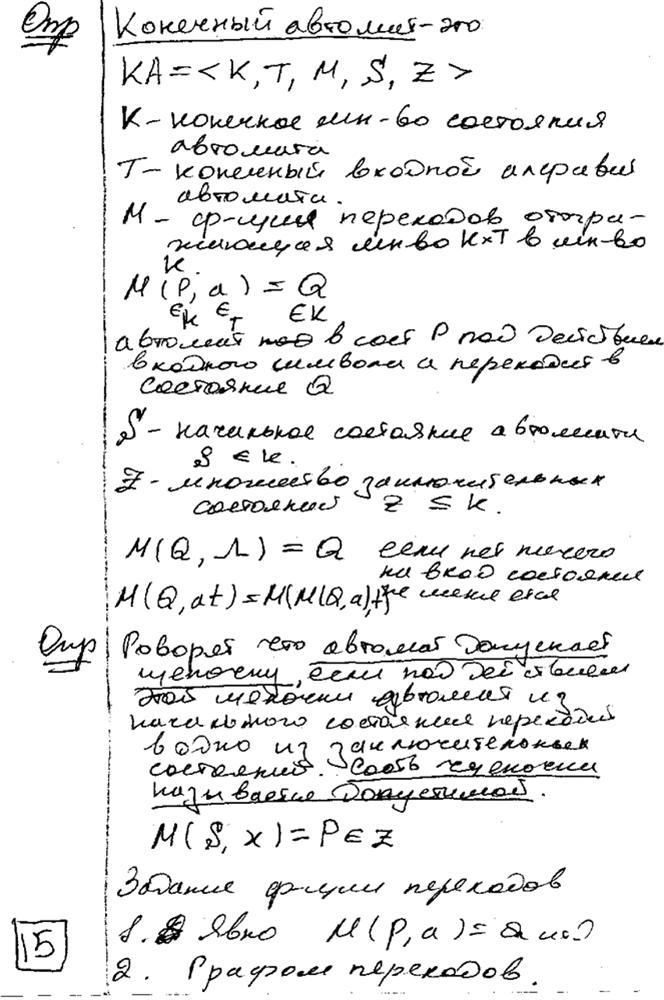 Опр Конечный автомат - это
КА = < K, T, M, S, Z >
K - конечное мн-во состояния
автомата
T - конечный входной алфавит
автомата.
M - ф-ция переходов отобра-
жающая мн-во K×T в мн-во
K.
M (P, a) = Q
∈K ∈T ∈K
автомат в сост P под действием
входного символа a переходит в
состояние Q
S - начальное состояние автомата
S ∈ K.
Z - множество заключительных
состояний Z ⊆ K.
M(Q, Λ) = Q если нет ничего
на вход состояния
M(Q, at) = M(M(Q,a),t) не меняется
Опр Говорят что автомат допускает
цепочку, если под действием
этой цепочки автомат из
начального состояния переходит
в одно из заключительных
состояний. Сооть цепочки
называется допустимой.
M(S, x) = P ∈ Z
Задание ф-ции переходов
1. Явно M(P, a) =
15 2. Графом переходов.